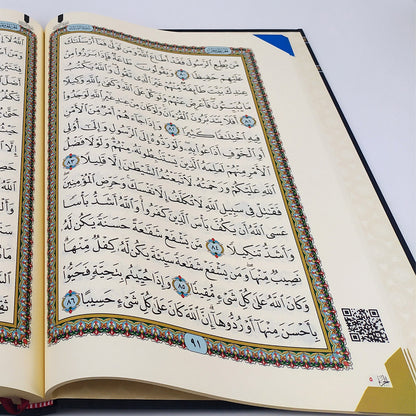 مَّن يُطِعِ الرَّسُولَ فَقَدْ أَطَاعَ اللَّهَ وَمَن تَوَلَّىٰ فَمَا أَرْسَلْنَاكَ
عَلَيْهِمْ حَفِيظًا ٨٠ وَيَقُولُونَ طَاعَةٌ فَإِذَا بَرَزُوا
مِنْ عِندِكَ بَيَّتَ طَائِفَةٌ مِّنْهُمْ غَيْرَ الَّذِي تَقُولُ وَاللَّهُ يَكْتُبُ
مَا يُبَيِّتُونَ فَأَعْرِضْ عَنْهُمْ وَتَوَكَّلْ عَلَى اللَّهِ وَكَفَىٰ بِاللَّهِ وَكِيلًا
٨١ أَفَلَا يَتَدَبَّرُونَ الْقُرْآنَ وَلَوْ كَانَ مِنْ عِندِ غَيْرِ اللَّهِ لَوَجَدُوا
فِيهِ اخْتِلَافًا كَثِيرًا ٨٢ وَإِذَا جَاءَهُمْ أَمْرٌ مِّنَ الْأَمْنِ
أَوِ الْخَوْفِ أَذَاعُوا بِهِ وَلَوْ رَدُّوهُ إِلَى الرَّسُولِ وَإِلَىٰ أُولِي
الْأَمْرِ مِنْهُمْ لَعَلِمَهُ الَّذِينَ يَسْتَنبِطُونَهُ مِنْهُمْ وَلَوْلَا فَضْلُ
اللَّهِ عَلَيْكُمْ وَرَحْمَتُهُ لَاتَّبَعْتُمُ الشَّيْطَانَ إِلَّا قَلِيلًا ٨٣
فَقَاتِلْ فِي سَبِيلِ اللَّهِ لَا تُكَلَّفُ إِلَّا نَفْسَكَ وَحَرِّضِ الْمُؤْمِنِينَ
عَسَى اللَّهُ أَن يَكُفَّ بَأْسَ الَّذِينَ كَفَرُوا وَاللَّهُ أَشَدُّ بَأْسًا
وَأَشَدُّ تَنكِيلًا ٨٤ مَّن يَشْفَعْ شَفَاعَةً حَسَنَةً يَكُن لَّهُ
نَصِيبٌ مِّنْهَا وَمَن يَشْفَعْ شَفَاعَةً سَيِّئَةً يَكُن لَّهُ كِفْلٌ مِّنْهَا
وَكَانَ اللَّهُ عَلَىٰ كُلِّ شَيْءٍ مُّقِيتًا ٨٥ وَإِذَا حُيِّيتُم بِتَحِيَّةٍ فَحَيُّوا
بِأَحْسَنَ مِنْهَا أَوْ رُدُّوهَا إِنَّ اللَّهَ كَانَ عَلَىٰ كُلِّ شَيْءٍ حَسِيبًا ٨٦
٩١
٥